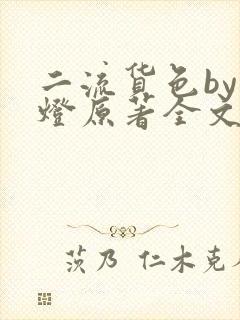 二流货色by
燈原著全文
茨乃 仁木克